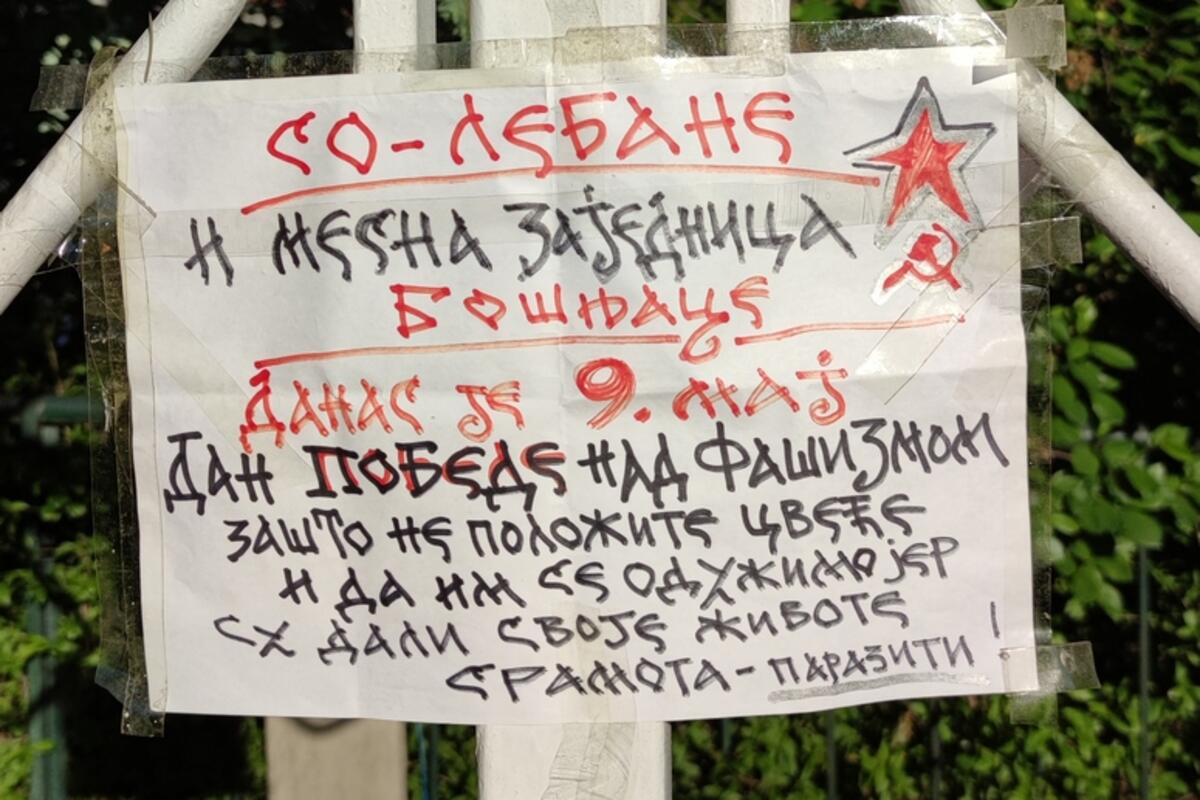 СО-ЛЕБАНЕ
И МЕСНА ЗАЈЕДНИЦА
БОШЊАЦЕ
ДАНАС ЈЕ 9. МАЈ
ДАН ПОБЕДЕ НАД ФАШИЗМОМ
ЗАШТО НЕ ПОЛОЖИТЕ ЦВЕЋЕ
И ДА ИМ СЕ ОДУЖИМО ЈЕР
СУ ДАЛИ СВОЈЕ ЖИВОТЕ
СРАМОТА-ПАРАЗИТИ!